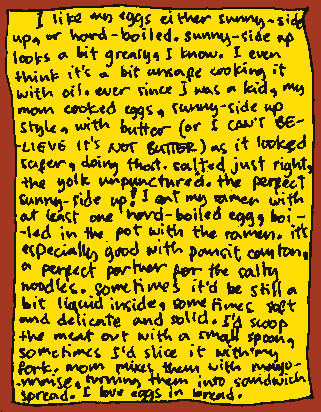 I like my eggs either sunny-side
up, or hard-boiled. sunny-side up
looks a bit greasy, I know. I even
think it's a bit unsafe cooking it
with oil. ever since I was a kid, my
mom cooked eggs, sunny-side up
style, with butter (or I CAN'T BE-
LIEVE IT'S NOT BUTTER) as it looked
safer, doing that. salted just right,
the yolk unpunctured. the perfect
sunny-side up! I eat my ramen with
at least one hard-boiled egg, boi-
-led in the pot with the ramen. it's
especially good with pansit canton,
a perfect partner for the salty
noodles. sometimes it'd be still a
bit liquid inside, sometimes soft
and delicate and solid. I'd scoop
the meat out with a small spoon,
sometimes I'd slice it with my
fork. mom mixes them with mayo-
-nnaise, turning them into sandwich
spread. I love eggs in bread.